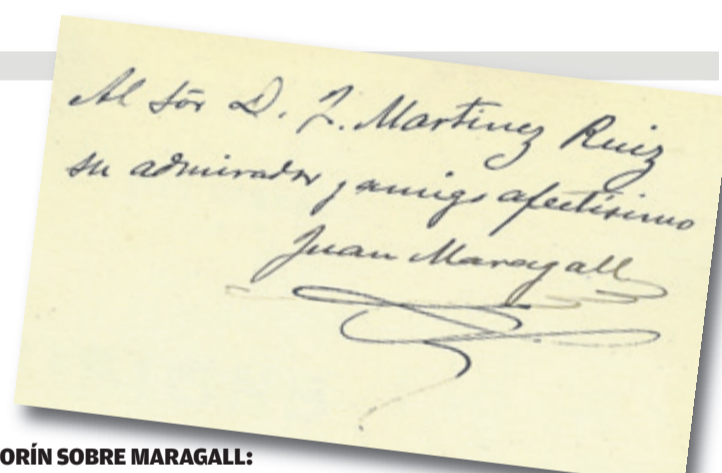 Al Sör D. J. Martinez Ruiz
su admirador y amigo afectísimo
Juan Maragall
ORÍN SOBRE MARAGALL: